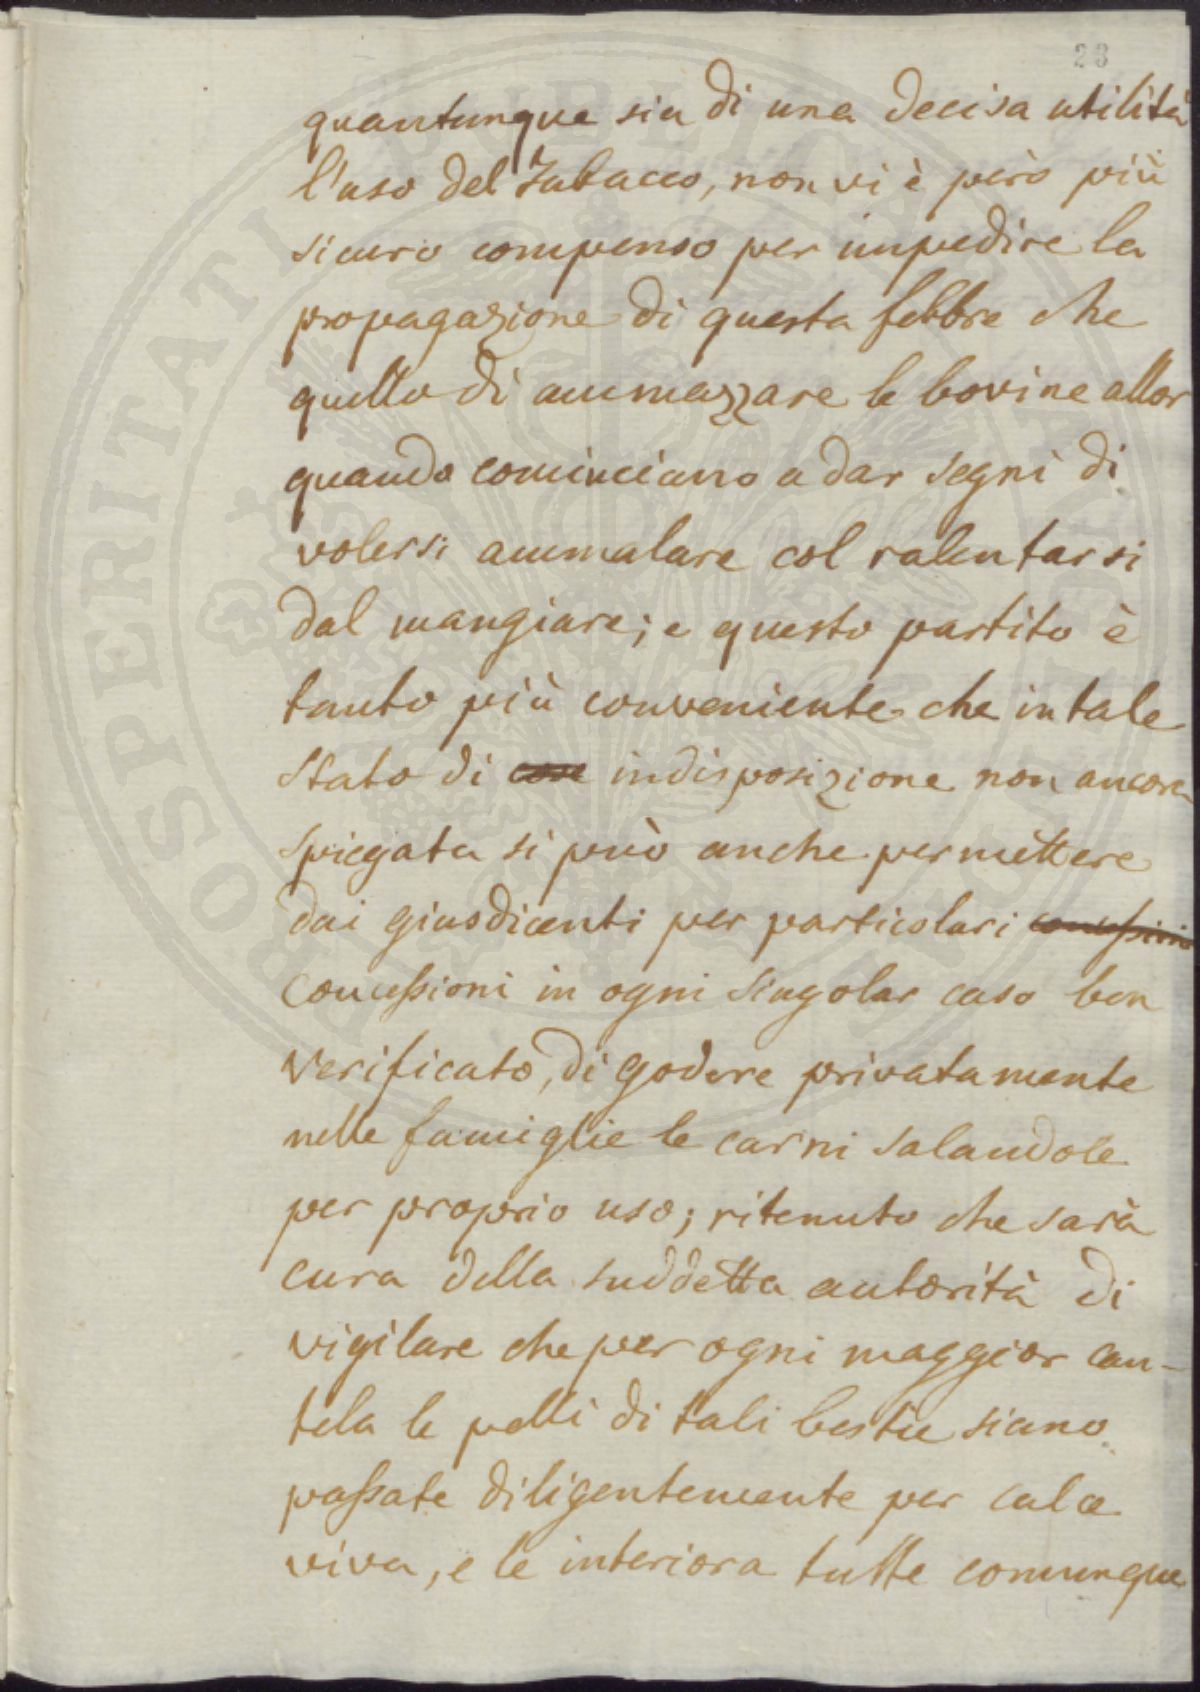 23
quantunque sia di una decisa utilità
l'uso del Tabacco, non vi è però più
sicuro compenso per impedire la
propagazione di questa febbre che
quello di ammazzare le bovine allor
quando cominciano a dar segni di
volersi ammalare col ralentarsi
dal mangiare; e questo partito è
tanto più conveniente che in tale
stato di cose indisposizione non ancora
spiegata si può anche permettere
dai giusdicenti per particolari concessioni
concessioni in ogni singolar caso ben
verificato, di godere privatamente
nelle famiglie le carni salandole
per proprio uso; ritenuto che sarà
cura della suddetta autorità di
vigilare che per ogni maggior cau-
tela le pelli di tali bestie siano
passate diligentemente per calce
viva, e le interiora tutte comunque
PROSPERITATI PUBLICAE AUGENDAE